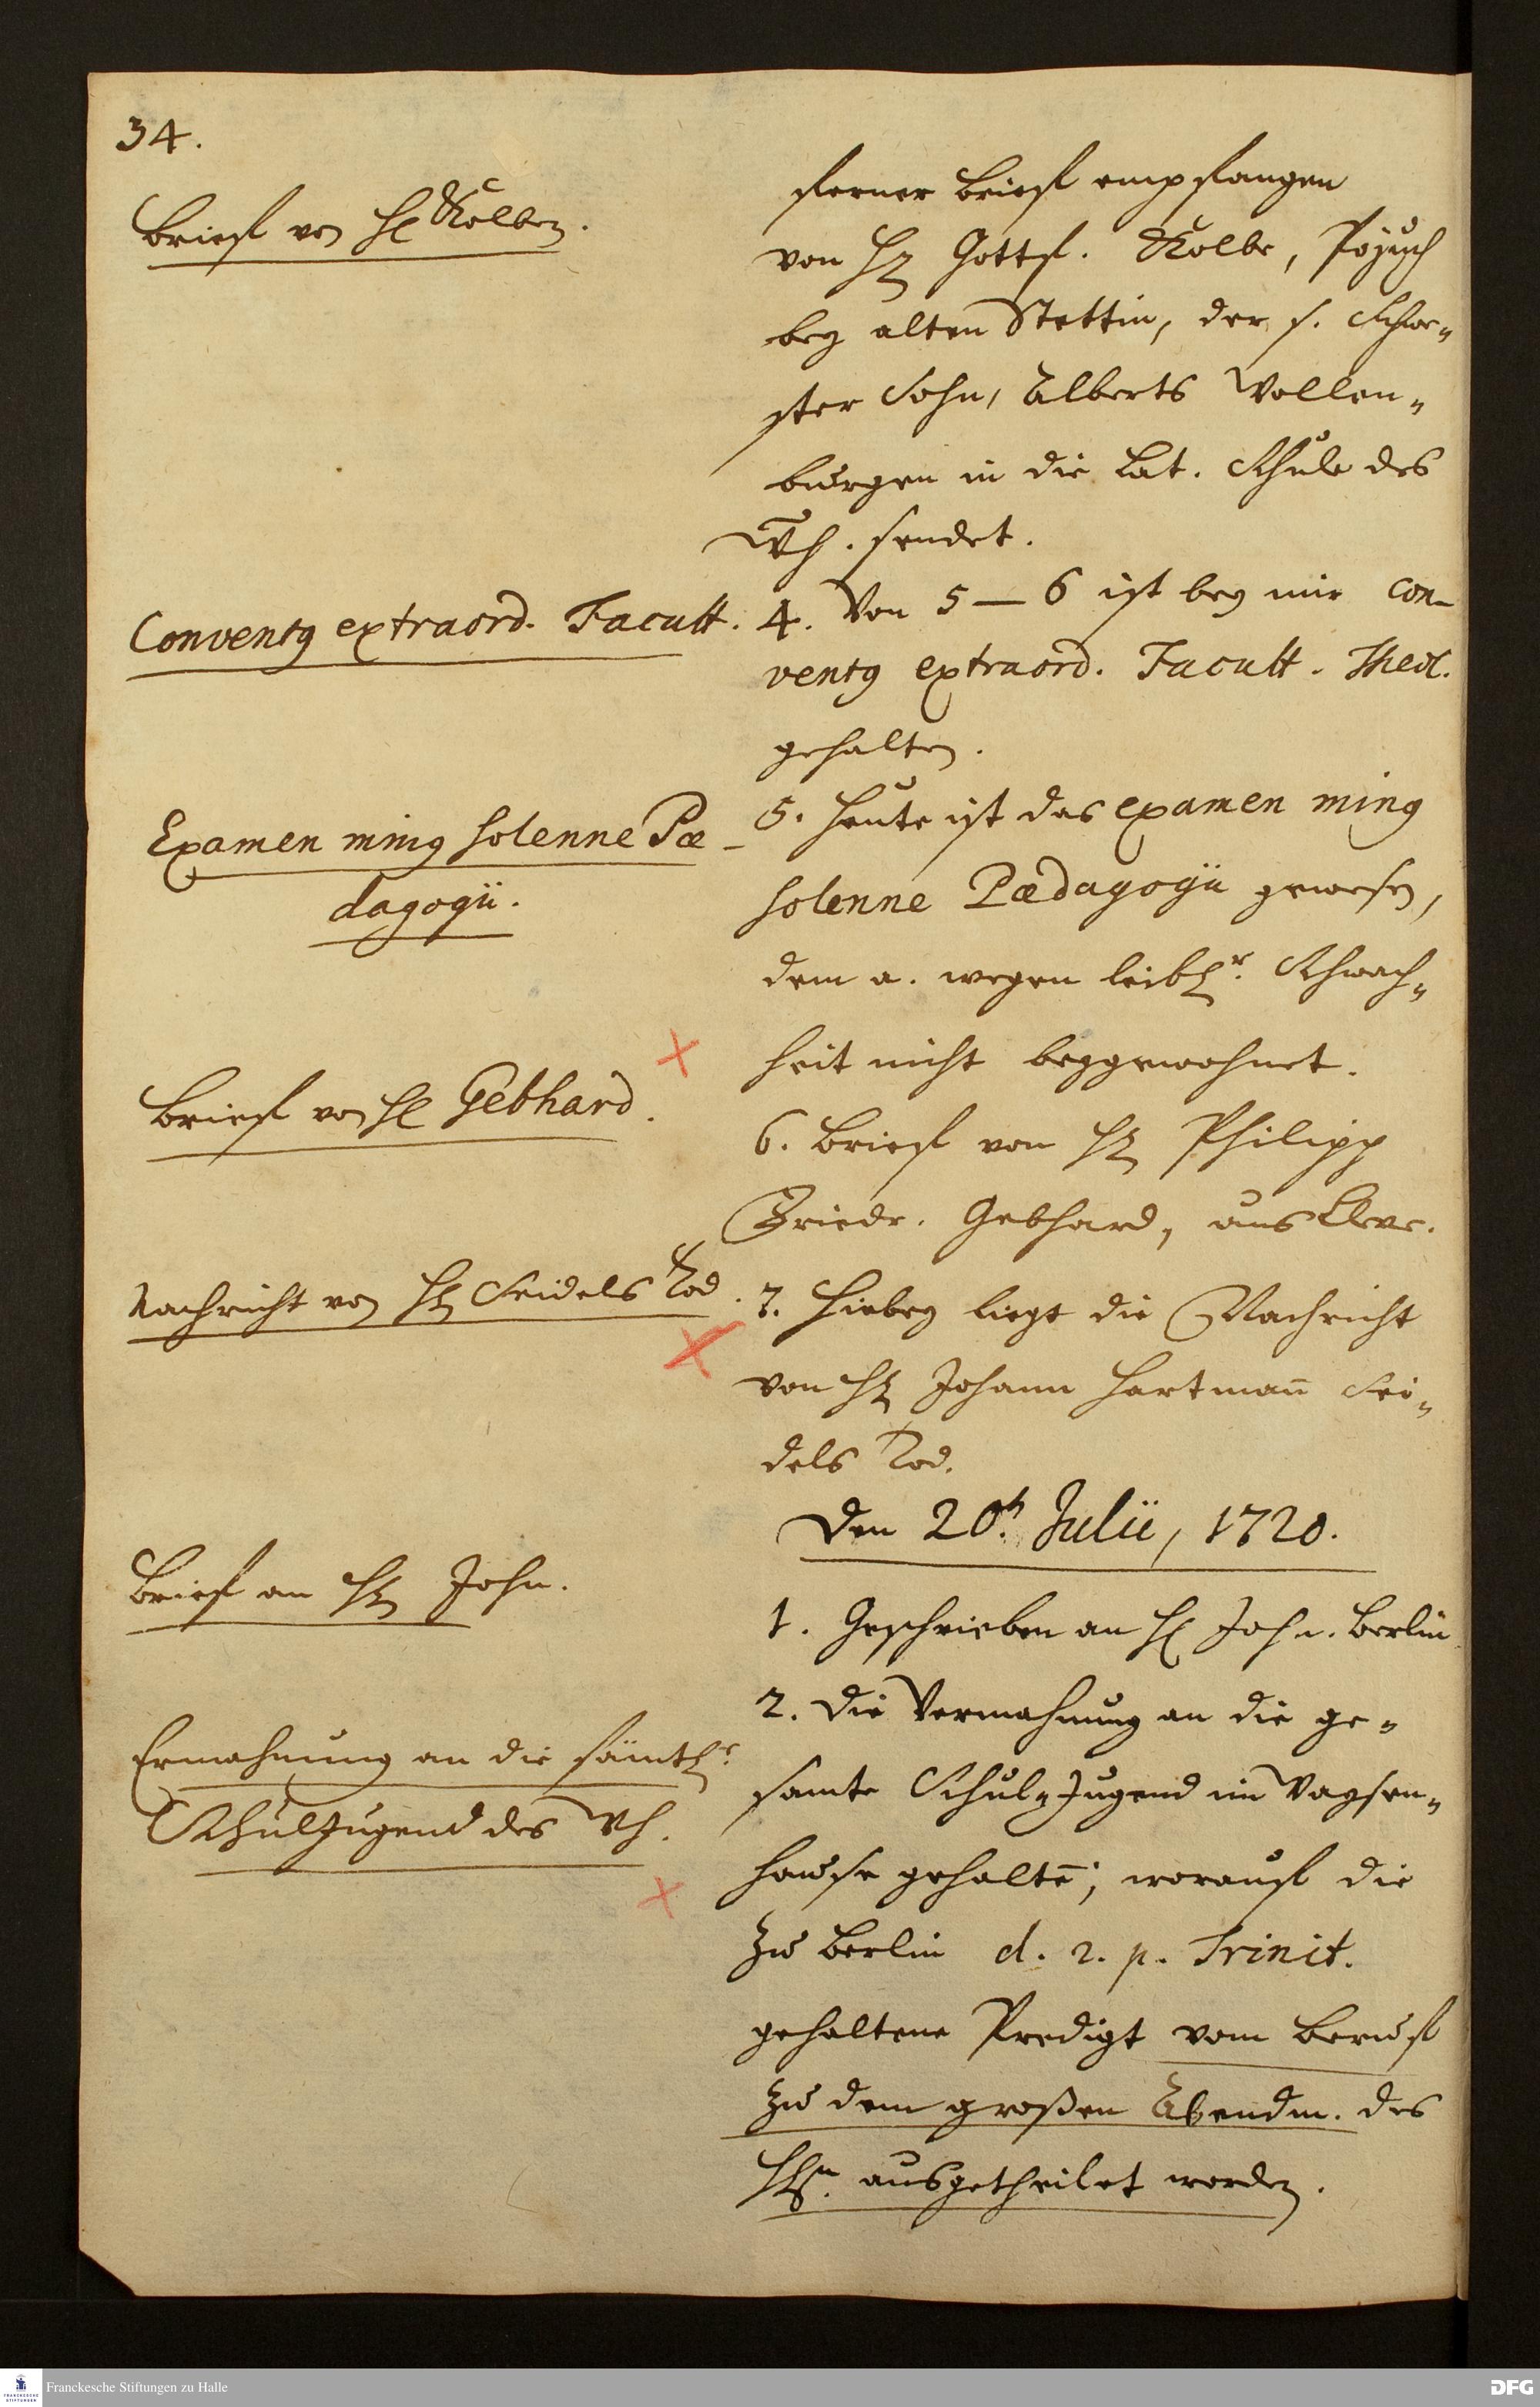 34.
Brief von H. Kolben.
ferner Brief empfangen
von H. Gottf. Kolbe,
bey alten Stettin, der s. Schwe-
ster Sohn, Alberts Wollen-
burgen in die Lat. Schule des
Wh. sendet.
Conventq extraord. Facult.
4. Von 5 — 6 ist bey mir con-
ventq extraord. Facult. Theol.
gehalten.
Examen minq solenne Pæ-
dagogii.
5. Heute ist das examen minq
solenne Pædagogii gewesen,
dem a. wegen leibl.r Schwach-
heit nicht beygewohnet.
Brief von H. Gebhard.
6. Brief von H. Philipp
Friedr. Gebhard, aus Cleve.
Nachricht von H. Seidels Tod.
7. Hiebey liegt die Nachricht
von H. Johann Hartmañ Sei-
dels Tod.
Den 20.t Julii, 1720.
Brief an H. John.
1. Geschrieben an H. John. Berlin
Ermahnung an die sämtl.e
Schuljugend des Wh.
2. Die Vermahnung an die ge-
samte Schul-Jugend im Waysen-
hause gehaltē; worauf die
zu Berlin d. 2. p. Trinit.
gehaltene Predigt vom Beruf
zu dem großen Abendm. des
HErrn. ausgetheilet worden.
Franckesche Stiftungen zu Halle
FRANCKESCHE
STIFTUNGEN
DFG